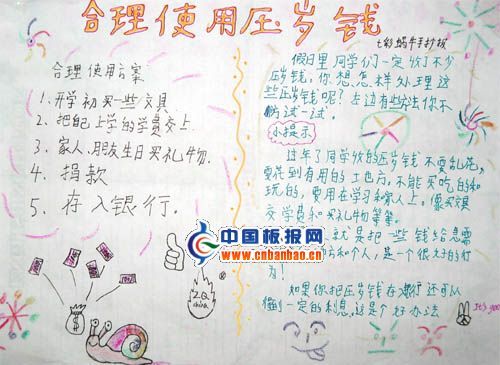 合理使用压岁钱
七彩蜗牛手抄报
合理使用方案
1. 开学初买一些文具
2. 把自己上学的学费交上
3. 家人、朋友生日买礼物.
4. 捐款
5. 存入银行.
假日里同学们一定收了不少
压岁钱,你想怎样处理这
些压岁钱呢?左边有些方法你不
妨试一试。
小提示
过年了同学收的压岁钱不要乱花,
要花到有用的土也方,不能买吃的和
玩的,要用在学习和家人上,像买文具
交学费和买礼物等等。
就是把一些钱给急需
方和个人,是一个很好的行
为!
如果你把压岁钱存银行还可以
一定的利息,这是个好办法
It's good
中国板报网
www.cnbanbao.cn
ZQ
china